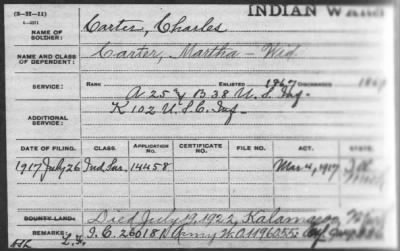 (3-SI-11)
INDIAN WARS
NAME OF SOLDIER: Carter, Charles
NAME AND CLASS OF DEPENDENT: Carter, Martha - Wid
SERVICE: RANK ENLISTED 1867 DISCHARGED
A 25 & B 38 U.S. Inf.
ADDITIONAL SERVICE: K 102 U.S.C. Inf.
DATE OF FILING. CLASS. APPLICATION NO. CERTIFICATE NO. FILE NO. ACT. STATE.
1917 July 26 Ind Sur. 14458 Mar 4, 1917
BOUNTY LAND: Died July 19, 1922, Kalamazoo,
REMARKS: I.C. 26018 Army W.O. 1196055